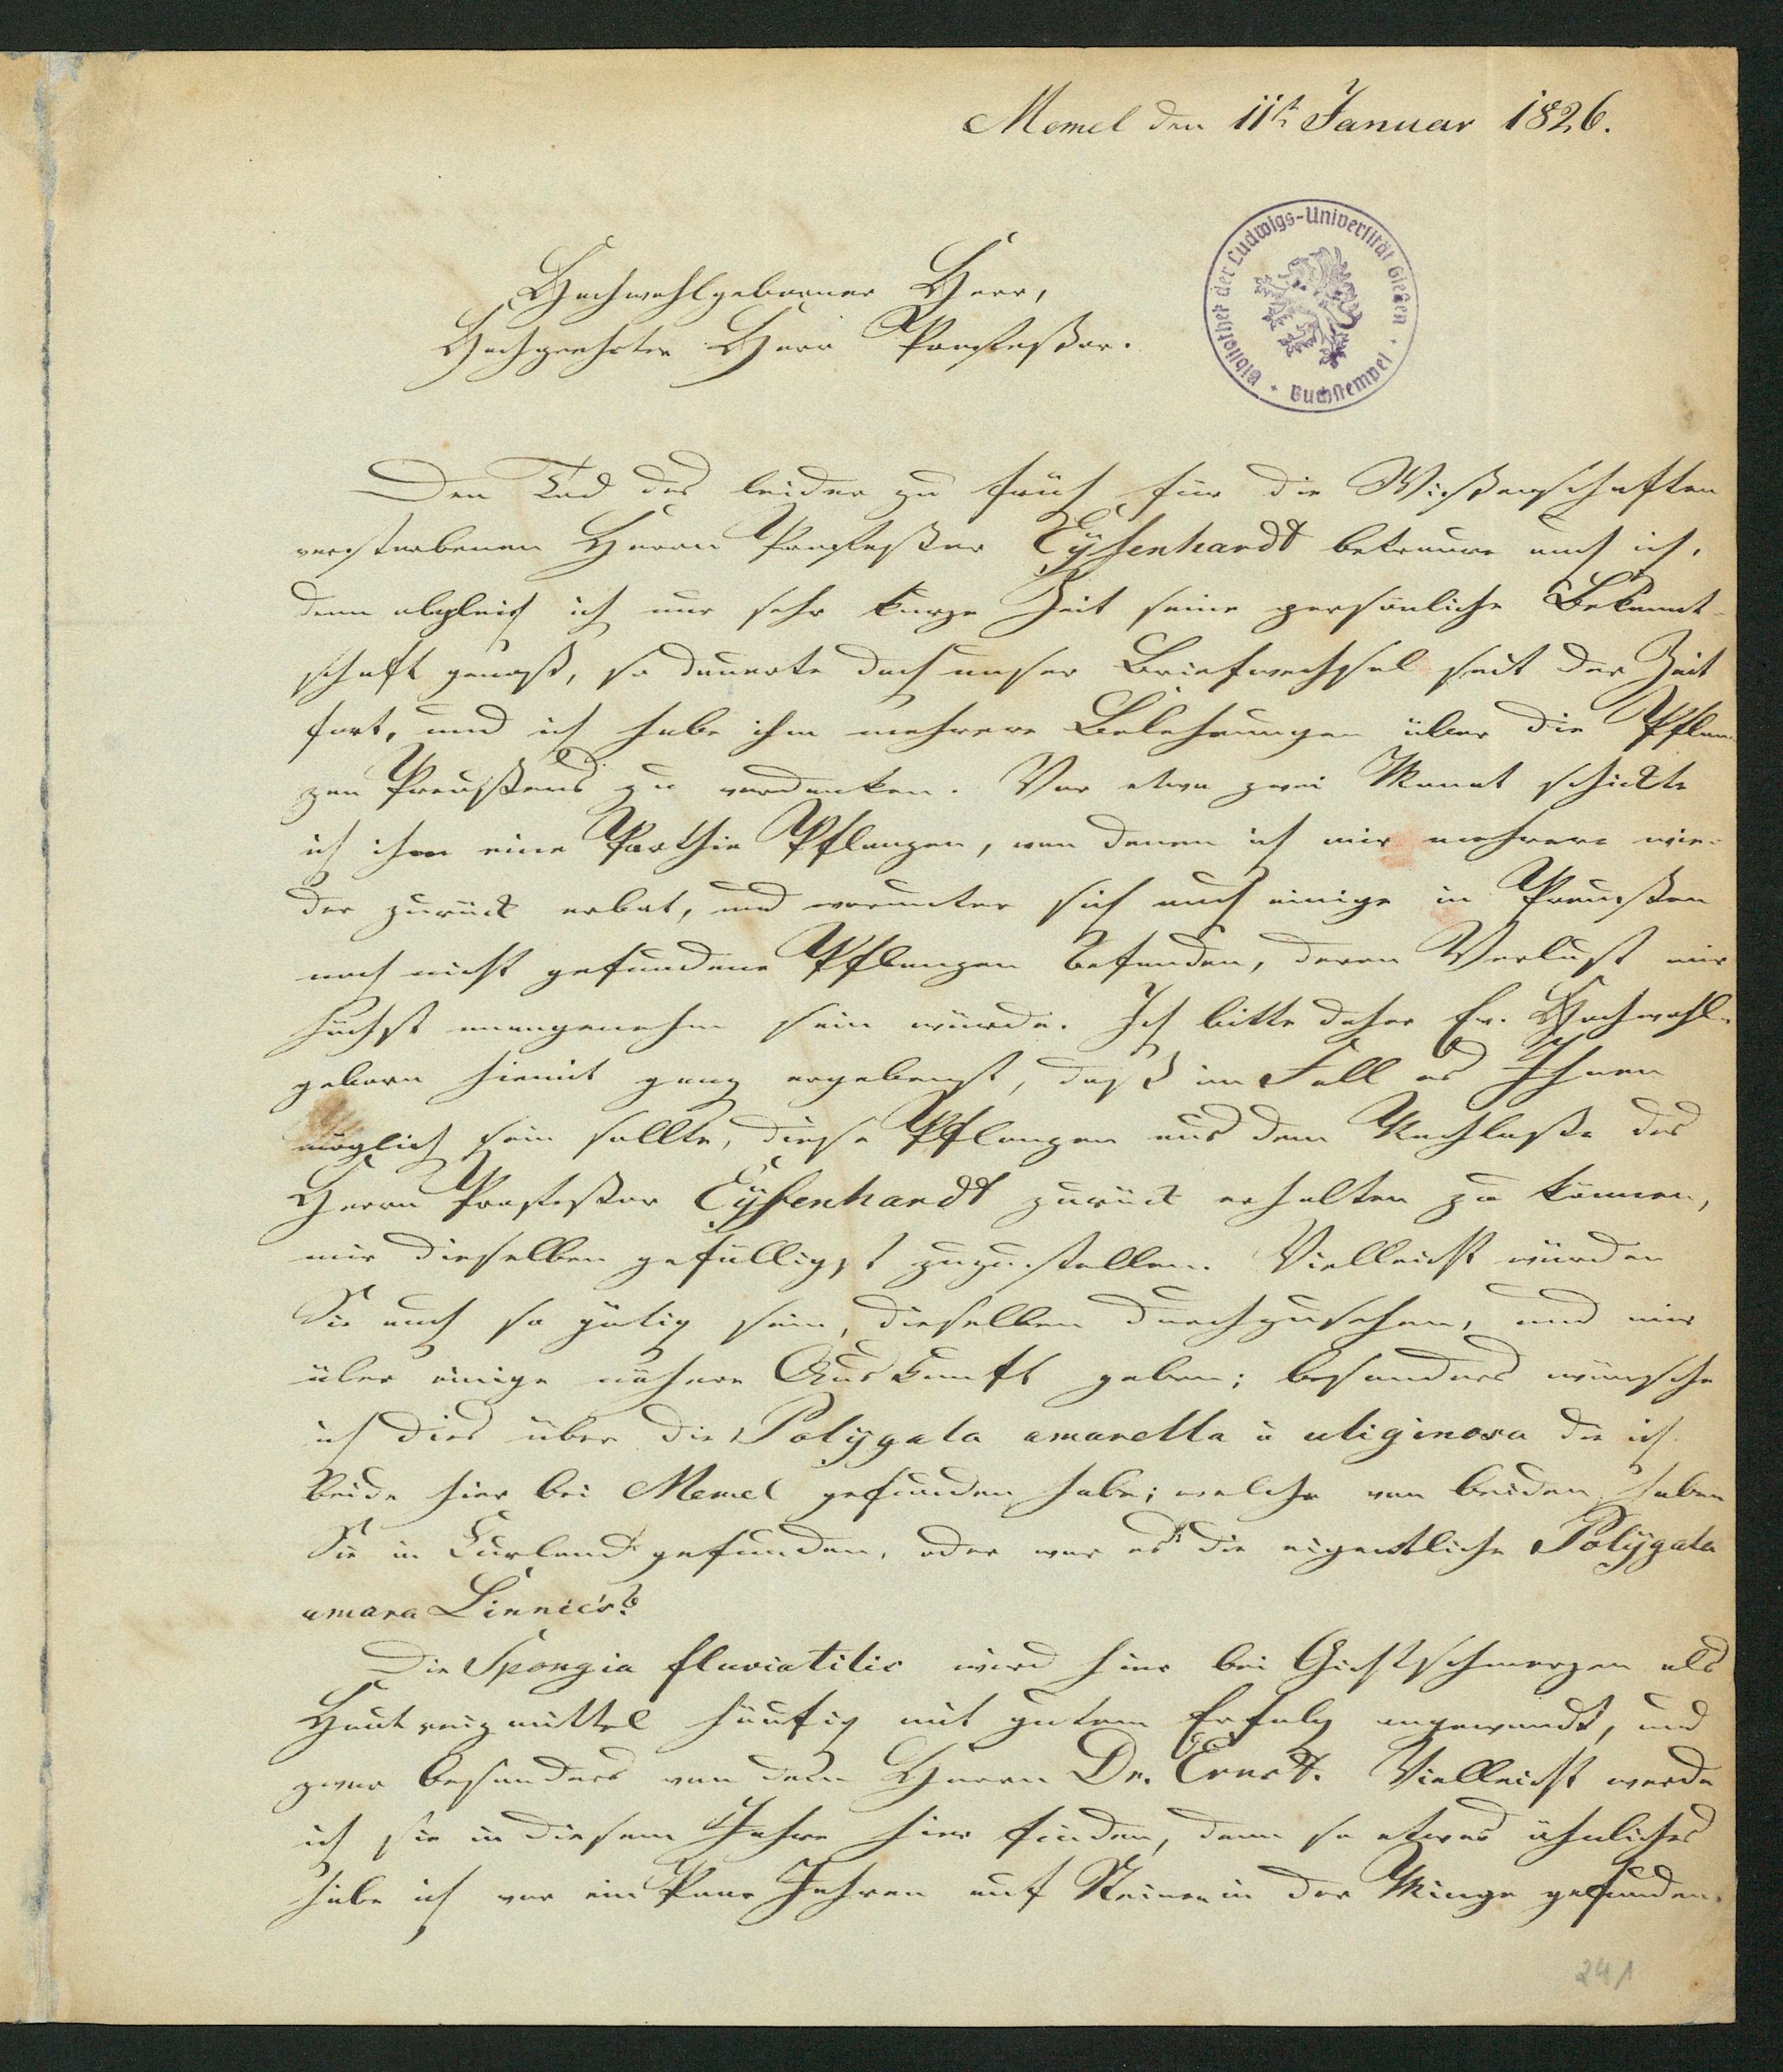 Memel den 11t Januar 1826.
Bibliothek der Ludwigs-Universität Gießen · Buchstempel ·
Hochwohlgeborner Herr,
Hochgeehrter Herr Professor.
Den Tod des leider zu früh für die Wißenschaften
verstorbenen Herrn Professor Eÿsenhardt betraure auch ich,
denn obgleich ich nur sehr kurze Zeit seine persönliche Bekannt-
schaft genoß, so dauerte doch unser Briefwechsel seit der Zeit
fort, und ich habe ihm mehrere Belehrungen über die Pflan-
zen Preußens zu verdanken. Vor etwa zwei Monat schickte
ich ihm eine Parthie Pflanzen, von denen ich mir mehrere wie-
der zurück erbat, und worunter sich auch einige in Preußen
noch nicht gefundene Pflanzen befanden, deren Verlust mir
höchst unangenehm sein würde. Ich bitte daher Ew. Hochwohl-
geborn hiemit ganz ergebenst, daß im Fall es Ihnen
möglich sein sollte, diese Pflanzen aus dem Nachlaße des
Herrn Professor Eÿsenhardt zurück erhalten zu können,
mir dieselben gefälligst zuzustellen. Vielleicht würden
Sie auch so gütig sein, dieselben durchzusehen, und mir
über einige nähere Auskunft geben; besonders wünsche
ich dies über die Polÿgala amarella u uliginosa die ich
beide hier bei Memel gefunden habe; welche von beiden haben
Sie in Curland gefunden, oder war es die eigentliche Polÿgala
amara Linnée's?
Die Spongia fluviatilis wird hier bei Gichtschmerzen als
Hautreizmittel häufig mit gutem Erfolg angewandt, und
zwar besonders von dem Herrn Dr. Ernst. Vielleicht werde
ich sie in diesem Jahre hier finden, denn so etwas ähnliches
habe ich vor ein Paar Jahren auf Steinen in der Minge gefunden.
241